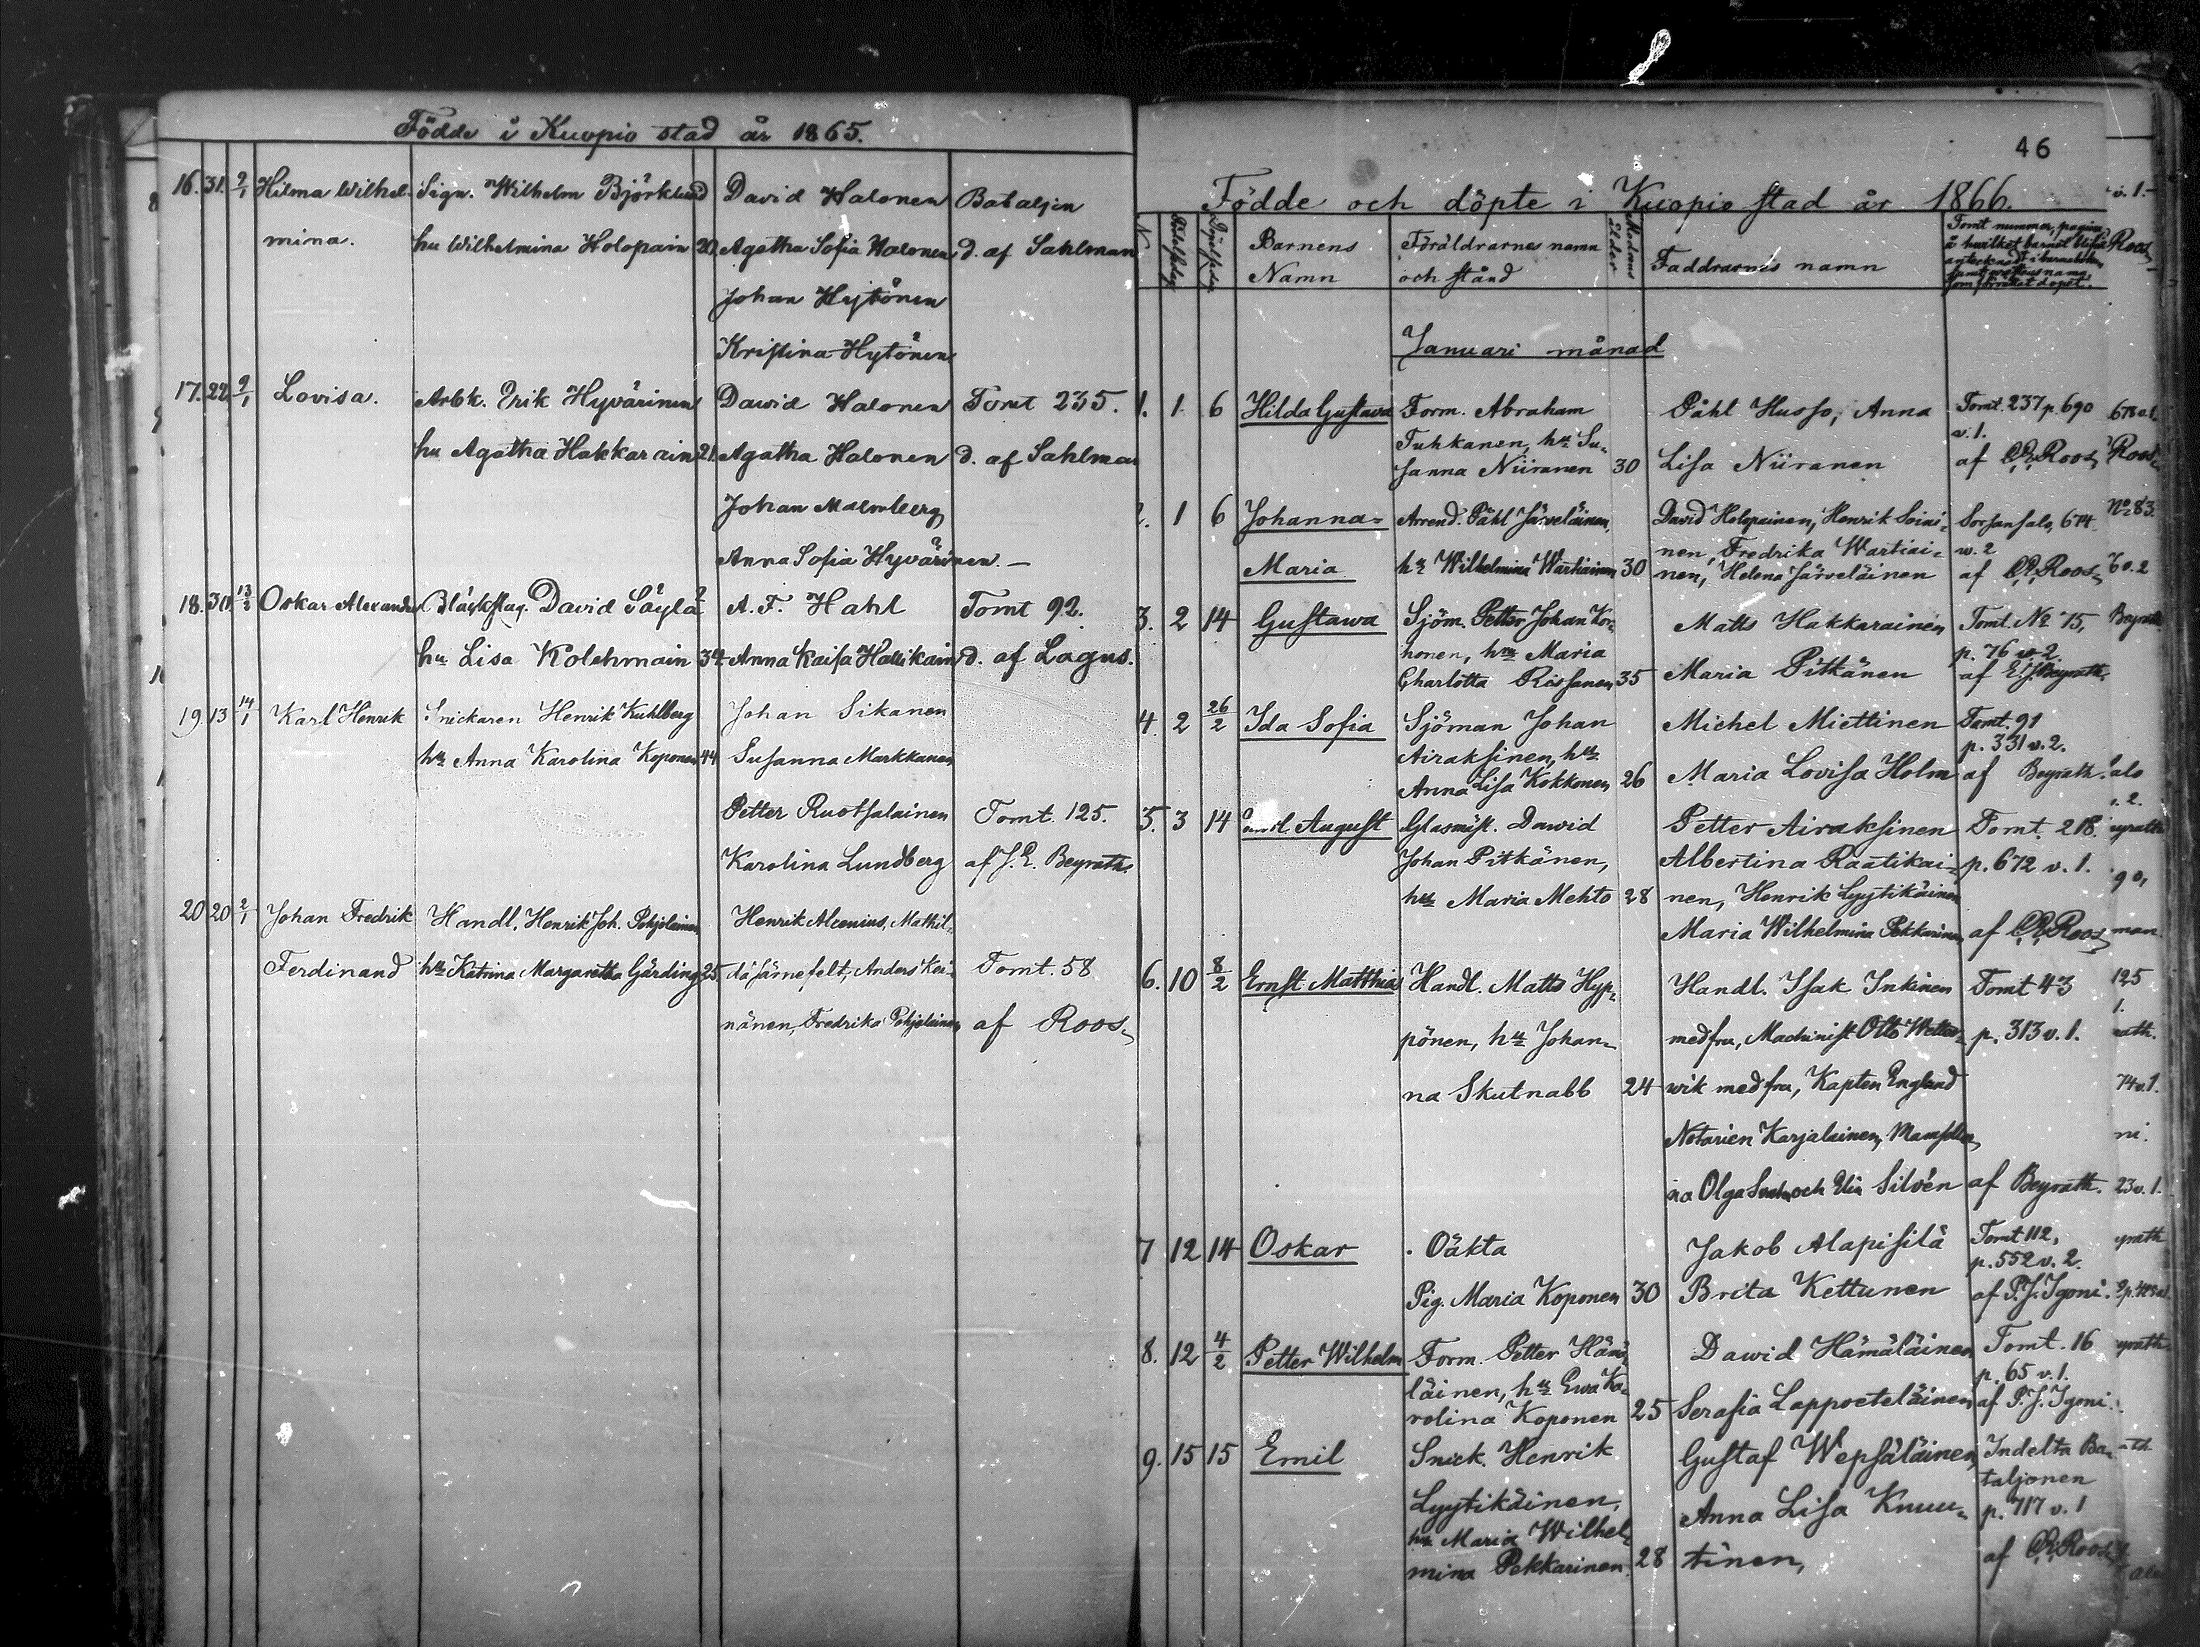 Födde i Kuopio stad år 1865.
16. 31. 9/1 Hilma Wilhel- Sign. Wilhelm Björklund David Halonen Bataljon
mina. hu Wilhelmina Holopain 20 Agatha Sofia Halonen d. af Sahlman
Johan Hytönen
Kristina Hytönen
17. 22. 9/1 Lovisa. Arbk. Erik Hyvärinen David Halonen Tomt 235.
hu Agatha Hakkarain 21 Agatha Halonen d. af Sahlman
Johan Malmberg
Anna Sofia Hyvärinen. —
18. 30. 13/2 Oskar Alexander Bläckslag. David Säylä A. F. Hahl Tomt 92.
hu Lisa Kolehmain Anna Kaisa Hallikain d. af Lagus.
19. 13 14/1 Karl Henrik Snickaren Henrik Kuhlberg Johan Sikanen
hu Anna Karolina Koponen 44 Susanna Markkanen
Petter Ruotsalainen Tomt. 125.
Karolina Lundberg af J. E. Beyrath.
20 20 2/1 Johan Fredrik Handl. Henrik Joh. Pohjolainen Henrik Alcenius, Mathil-
Ferdinand hu Katrina Margaretha Gårding 25 da Järnefelt, Anders Kei- Tomt. 58
nänen, Fredrika Pohjolainen af Roos
46
Födde och döpte i Kuopio stad år 1866.
N Födelsedag Döpelsedag Barnens Namn Föräldrarnes namn och stånd Modrens ålder Faddrarnes namn Tomt nummer, pagina å hvilket barnet
Januari månad
1. 1 6 Hilda Gustava Form. Abraham Påhl Husso, Anna Tomt. 237 p. 690
v. 1.
Tuhkanen, hu Su-
sanna Niiranen 30 Lisa Niiranen af Roos
2. 1 6 Johanna- Arrend. Påhl Järveläinen, David Holopainen, Henrik Soini- Sorsansalo, 674
nen, Fredrika Wartiai- v. 2
Maria hu Wilhelmina Wartiainen 30 nen, Helena Järveläinen af Roos
3. 2 14 Gustawa Sjöm. Petter Johan Kor- Matts Hakkarainen Tomt. No 75,
honen, hu Maria p. 76 v. 2
Charlotta Rissanen 35 Maria Pitkänen af E. J. Beyrath.
4. 2 26/2 Ida Sofia Sjöman Johan Michel Miettinen Tomt. 91
Airaksinen, hu p. 331 v. 2.
Anna Lisa Kokkonen 26 Maria Lovisa Holm af Beyrath.
5. 3 14 August Glasmäst. Dawid Petter Airaksinen Tomt. 218.
Johan Pitkänen, Albertina Raatikai- p. 672 v. 1.
hu Maria Mehto 28 nen, Henrik Lyytikäinen
Maria Wilhelmina Pekkarinen af Roos
6. 10 8/2 Ernst Matthias Handl. Matts Hyp- Handl. Isak Inkinen Tomt 43
pönen, hu Johan- med fru, Machinist Otto Wetter- p. 313 v. 1.
na Skutnabb 24 wik med fru, Kapten England
Notarien Karjalainen,
Olga och Silvén af Beyrath.
7 12 14 Oskar Oäkta Jakob Alapisilä Tomt 112,
p. 552 v. 2.
Pig. Maria Koponen 30 Brita Kettunen af P. J. Igoni.
8. 12 4/2 Petter Wilhelm Form. Petter Hämä- Dawid Hämäläinen Tomt. 16
läinen, hu Ewa Ka- p. 65 v. 1.
rolina Koponen 25 Serafia Lappoteläinen af P. J. Igoni.
9. 15 15 Emil Snick. Henrik Gustaf Wepsäläinen, Indelta Ba-
taljonen
Lyytikäinen, Anna Lisa Knuu- p. 717 v. 1
hu Maria Wilhel-
mina Pekkarinen. 28 tinen, af Roos